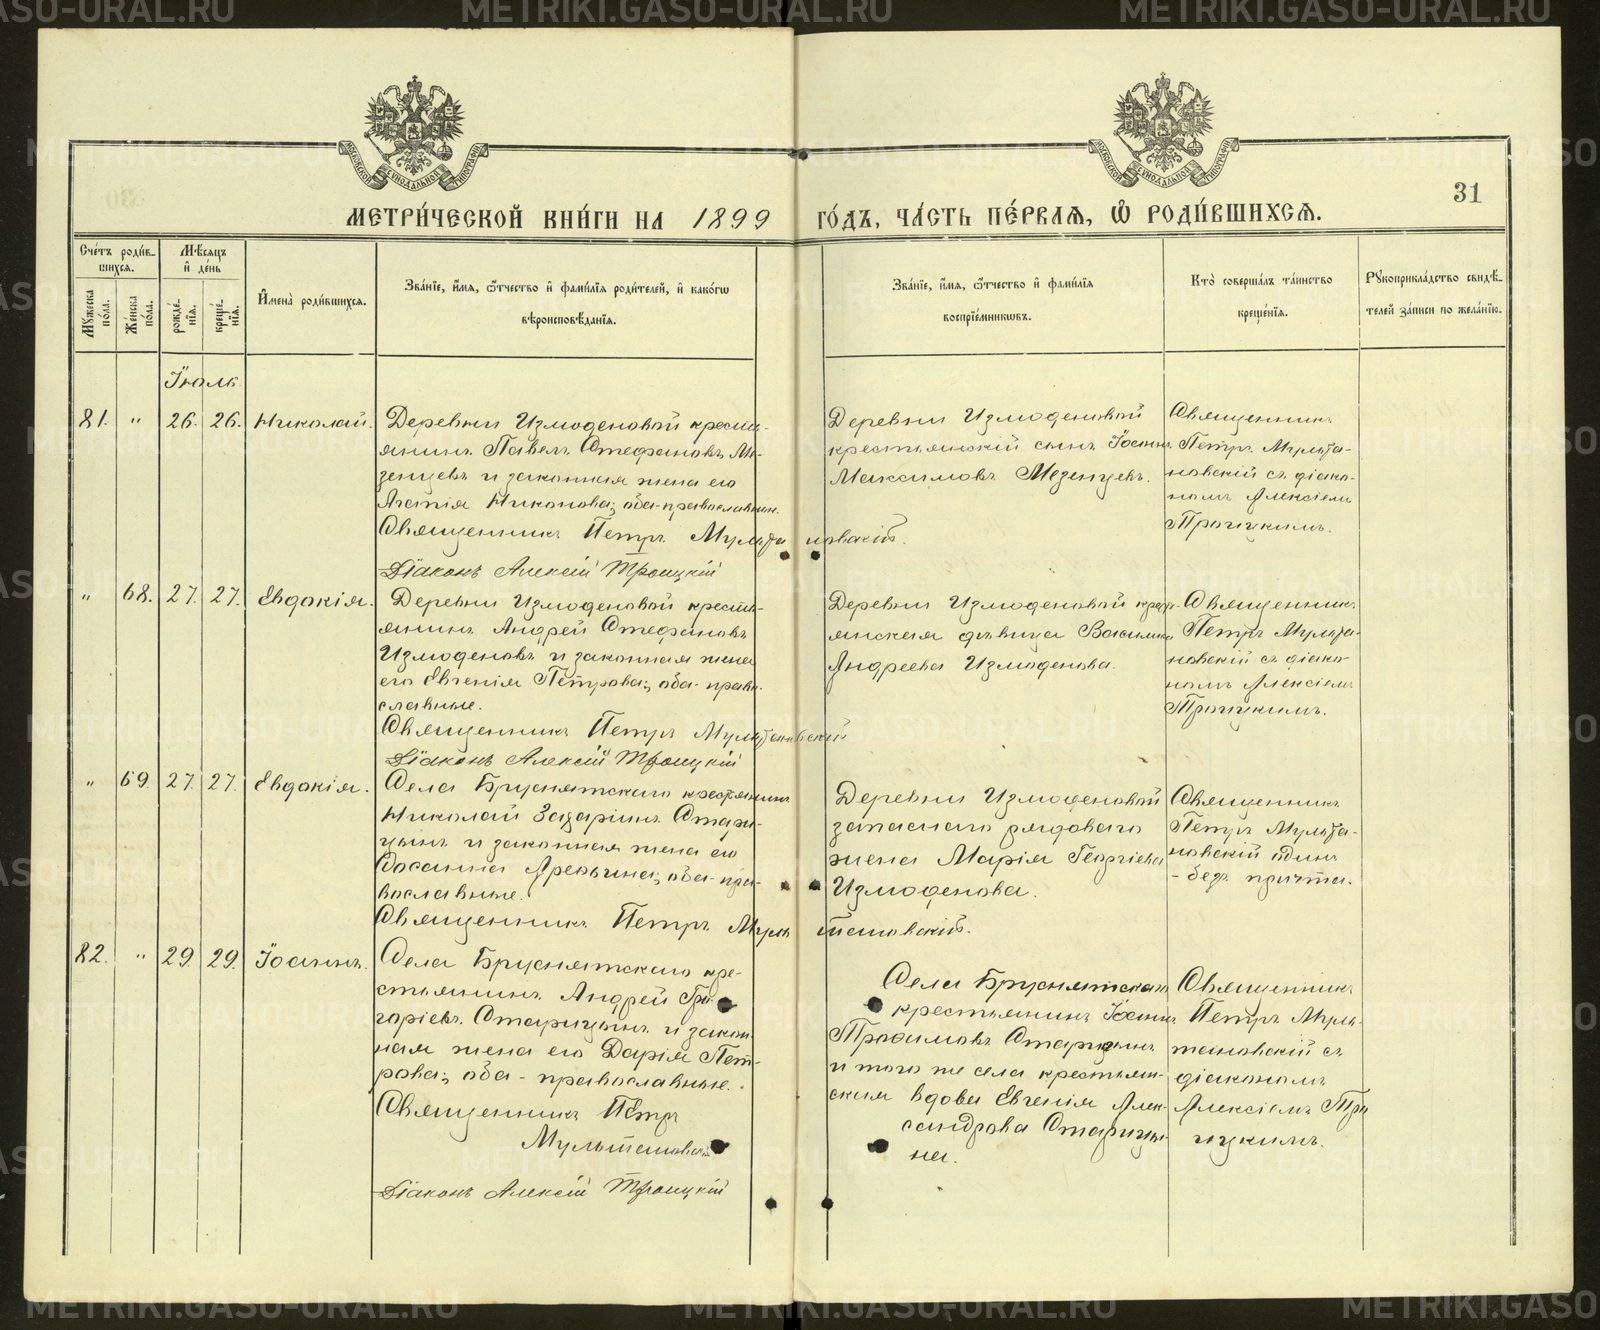 METRIKI.GASO-URAL.RU
31
МЕТРИ́ЧЕСКОЙ КНИ́ГИ НА 1899 ГО́ДЪ, ЧА́СТЬ ПЕ́РВАѦ, Ѿ РОДИ́ВШИХСѦ.
Сче́тъ роди́в-
шихся.
Мꙋ́жеска по́ла.
Же́нска по́ла.
Мѣ́сяцъ и҆ де́нь
рожде́-
нїя.
креще́-
нїя.
И҆мена̀ роди́вшихся.
Зва́нїе, и҆́мя, ѻ҆́тчество и҆ фами́лїя роди́телей, и҆ како́гѡ
вѣроисповѣ́данїя.
Зва́нїе, и҆́мя, ѻ҆́тчество и҆ фами́лїя
воспрїе́мникѡвъ.
Кто̀ соверша́лъ та́инство
креще́нїя.
Рꙋкоприкла́дство свидѣ́-
телей за́писи по жела́нїю.
Іюль
81. " 26. 26. Николай.
Деревни Измоденовой кресть-
янинъ Павелъ Стефановъ Ме-
зенцевъ и законная жена его
Агапія Никонова; оба православные.
Священникъ Петръ Мультановскій.
Діаконъ Алексій Троицкій
Деревни Измоденовой
крестьянскій сынъ Іоаннъ
Максимовъ Мезенцевъ.
Священникъ
Петръ Мульта-
новскій съ діако-
номъ Алексіемъ
Троицкимъ.
" 68. 27. 27. Евдокія.
Деревни Измоденовой кресть-
янинъ Андрей Стефановъ
Измоденовъ и законная жена
его Евгенія Петрова; оба право-
славные.
Священникъ Петръ Мультановскій
Діаконъ Алексій Троицкій
Деревни Измоденовой кресть-
янская дѣвица Василиса
Андреева Измоденова.
Священникъ
Петръ Мульта-
новскій съ діако-
номъ Алексіемъ
Троицкимъ.
" 69. 27. 27. Евдокія.
Села Бруснятскаго крестьянинъ
Николай Захаріинъ Стари-
цынъ и законная жена его
Сосанна Арефьина; оба пра-
вославные.
Священникъ Петръ Мультановскій.
Деревни Измоденовой
запаснаго рядоваго
жена Марія Георгіева
Измоденова.
Священникъ
Петръ Мульта-
новскій одинъ
- безъ причта.
82. " 29. 29. Іоаннъ.
Села Бруснятскаго кре-
стьянинъ Андрей Гри-
горіевъ Старицынъ и закон-
ная жена его Дарія Пет-
рова; оба - православные.
Священникъ Петръ
Мультановскій
Діаконъ Алексій Троицкій
Села Бруснятскаго
крестьянинъ Іоаннъ
Трофимовъ Старицынъ
и того же села крестьян-
ская вдова Евгенія Алек-
сандрова Старицы-
на.
Священникъ
Петръ Муль-
тановскій съ
діакономъ
Алексіемъ Трои-
цкимъ.